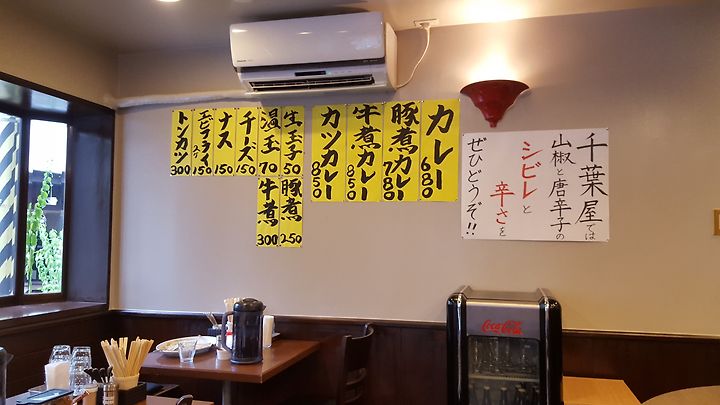 カレー 680
豚煮カレー 780
牛煮カレー 850
カツカレー 850
生玉子 50
温玉 70
チーズ 150
ナス 150
エビフライ 150
トンカツ 300
豚煮 250
牛煮 300
千葉屋では
山椒と唐辛子の
シビレと
辛さを
ぜひどうぞ!!
Coca-Cola